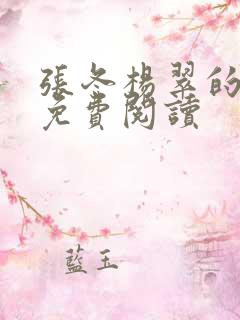 張冬楊翠的
免費閱讀
藍玉